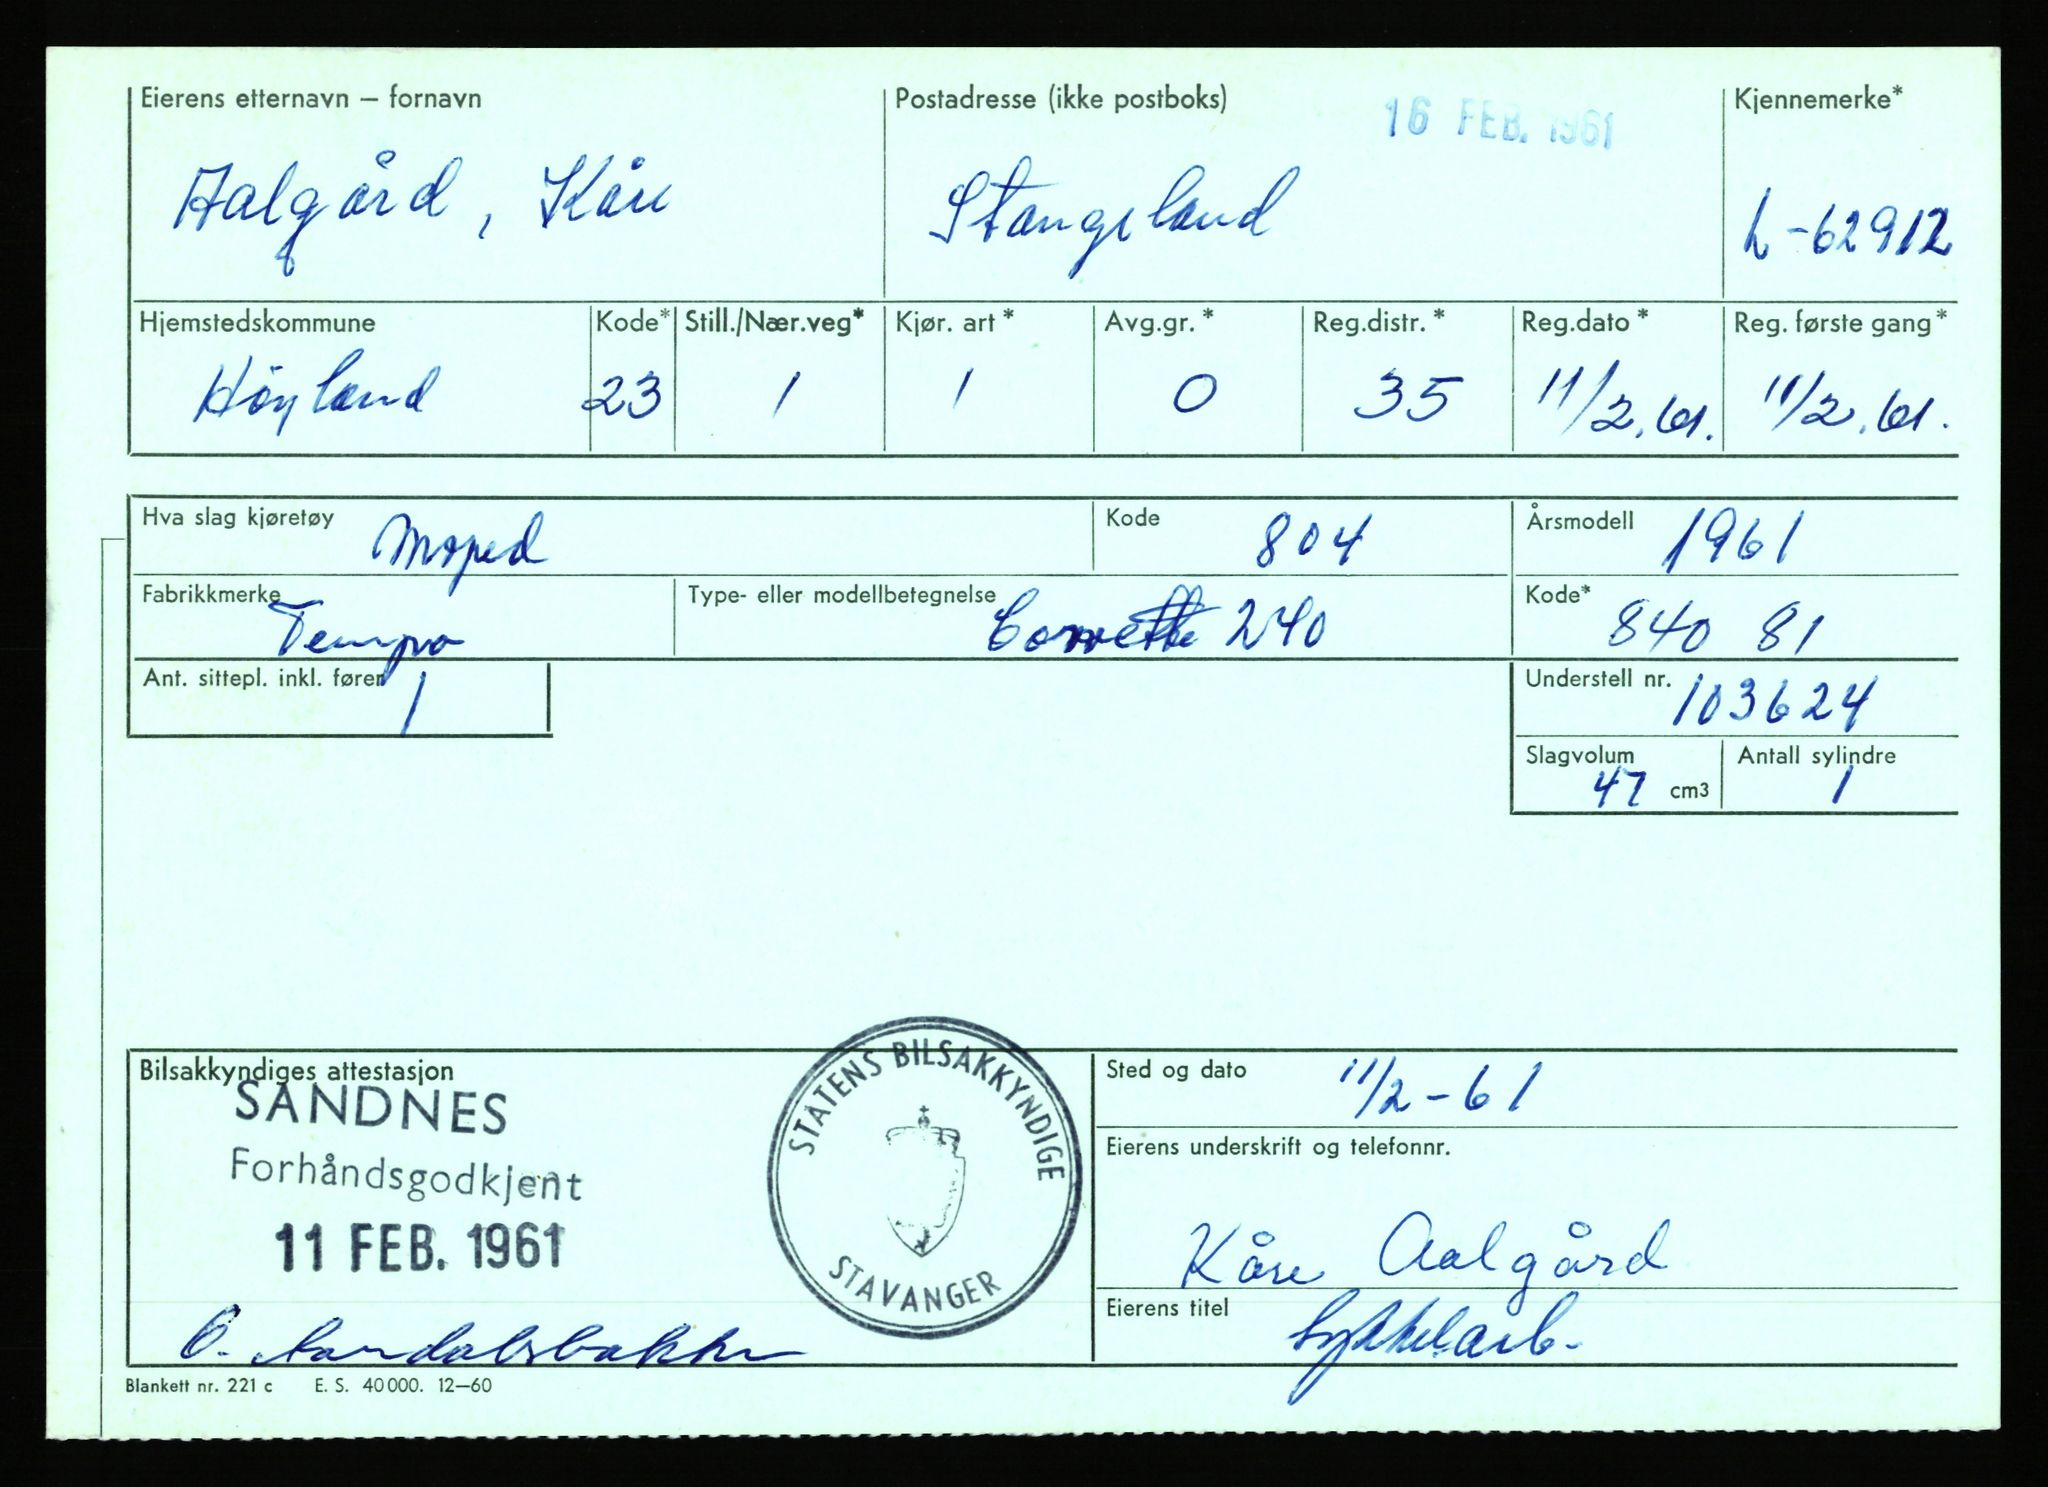 Eierens etternavn – fornavn
Aalgård, Kåre
Postadresse (ikke postboks)
16 FEB. 1961
Stangeland
Kjennemerke*
L-62912
Hjemstedskommune
Höyland
Kode*
23
Still./Nær.veg*
1
Kjør. art *
1
Avg.gr. *
0
Reg.distr. *
35
Reg.dato *
11/2.61.
Reg. første gang *
11/2.61.
Hva slag kjøretøy
Moped
Kode
804
Årsmodell
1961
Fabrikkmerke
Tempo
Type- eller modellbetegnelse
Corvette 240
Kode*
840 81
Ant. sittepl. inkl. fører
1
Understell nr.
103624
Slagvolum
47 cm3
Antall sylindre
1
Bilsakkyndiges attestasjon
SANDNES
Forhåndsgodkjent
11 FEB. 1961
STATENS BILSAKKYNDIGE
STAVANGER
Sted og dato
11/2-61
Eierens underskrift og telefonnr.
Kåre Aalgård
Eierens titel
Sykkelarb.
Blankett nr. 221 c E. S. 40 000. 12–60